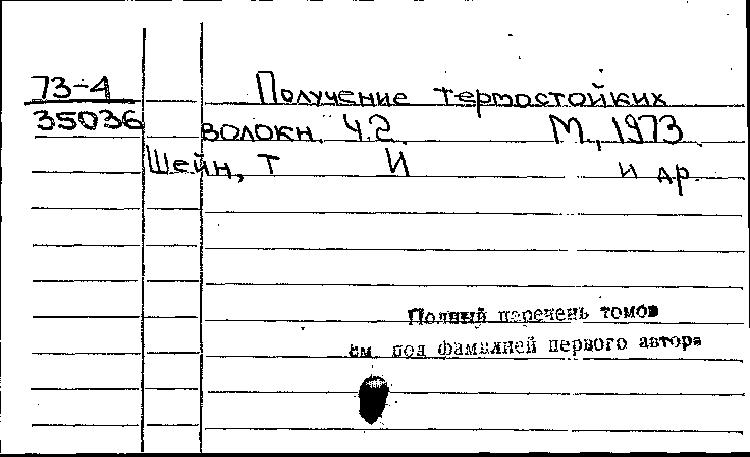 73-4
35036
Получение термостойких
волокн. Ч.2. М., 1973.
Шейн, Т И и др.
Полный перечень томов
см под фамилией первого автора